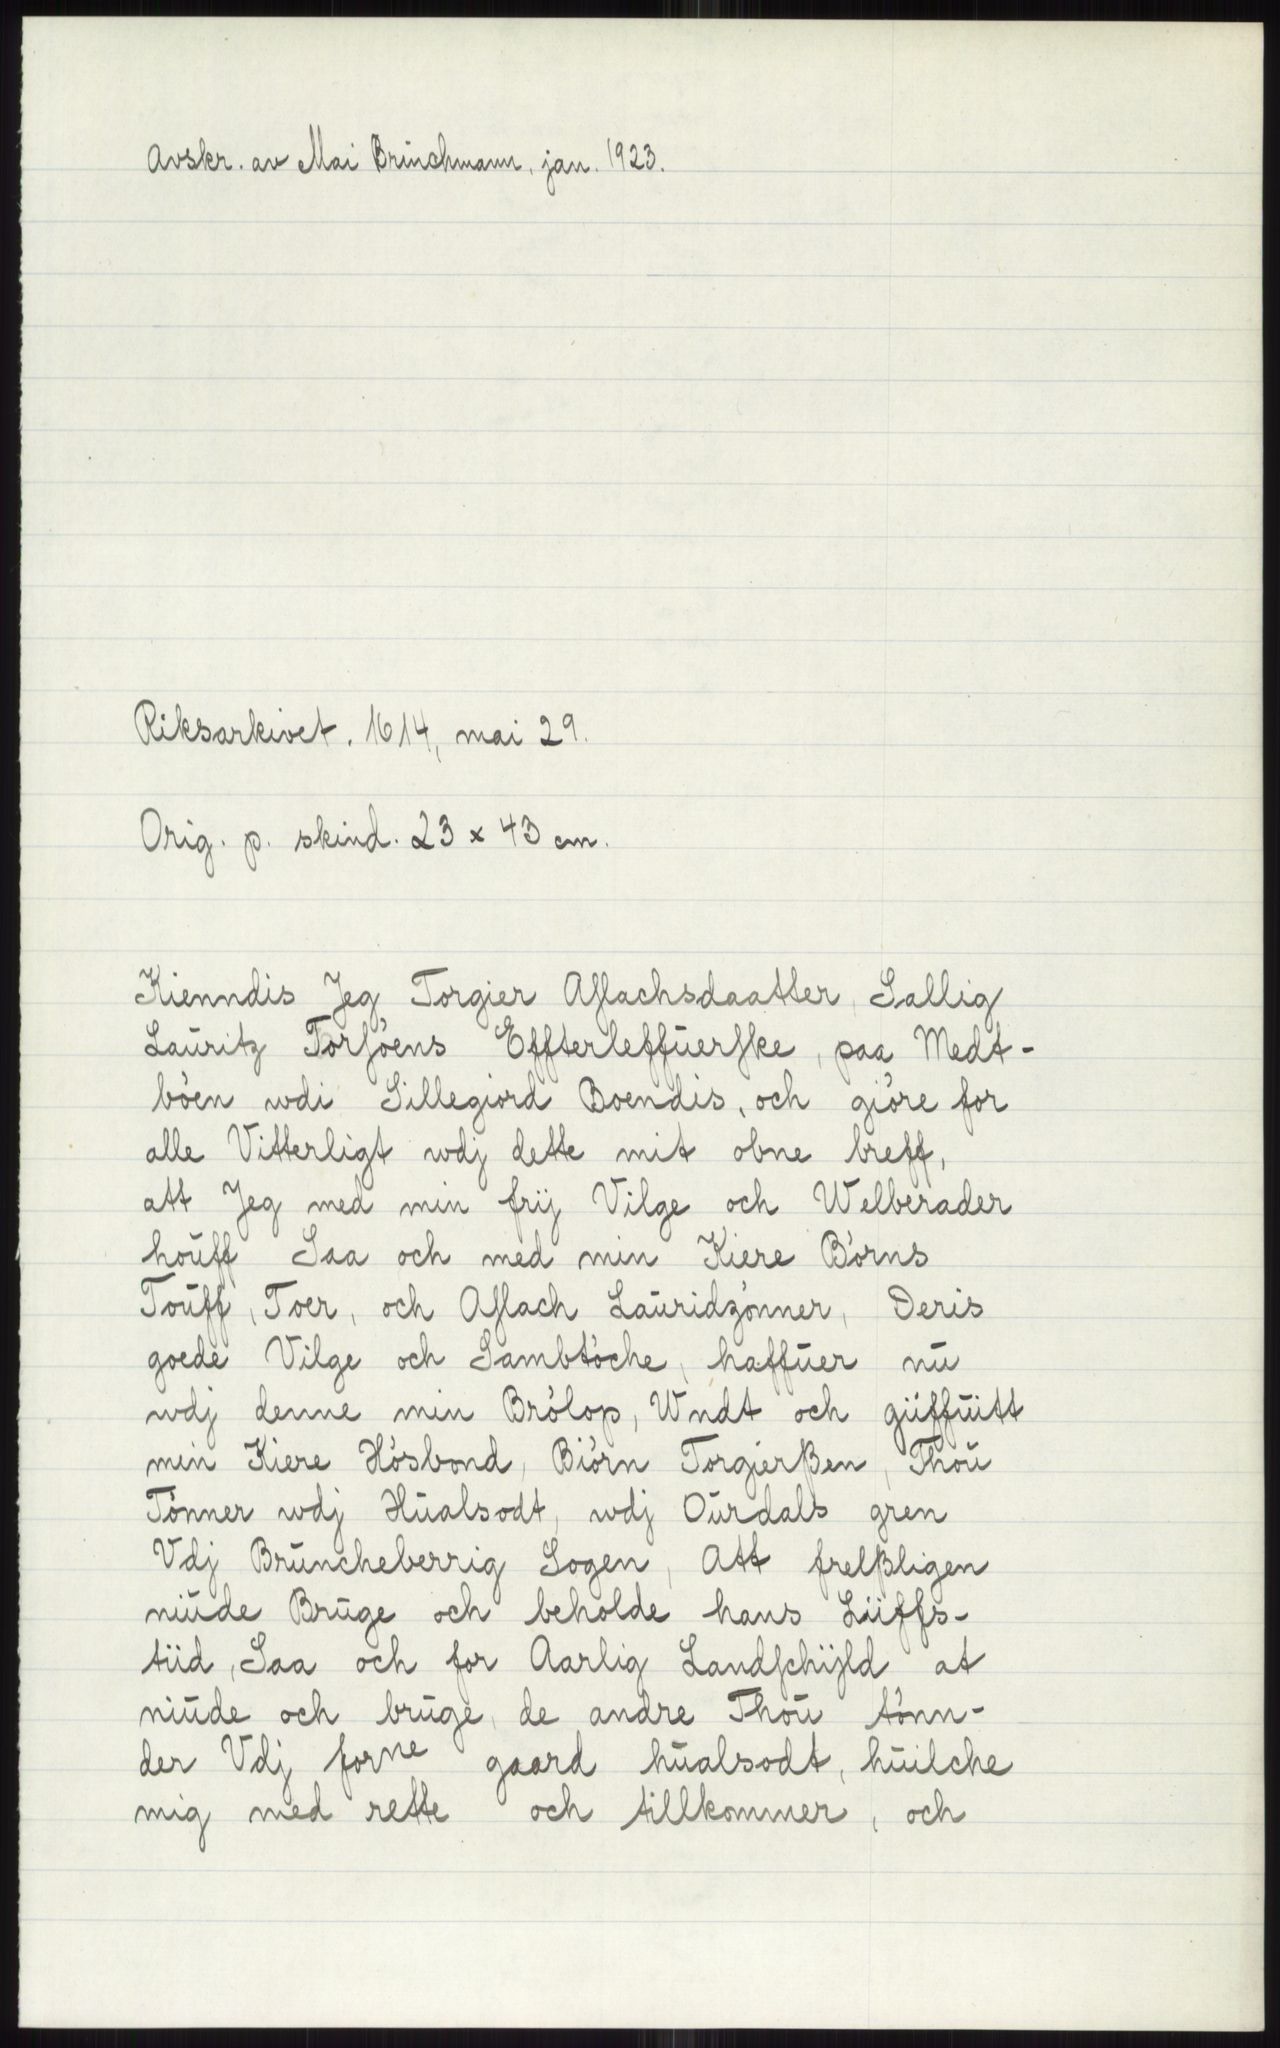 Avskr. av Mai Brünchmann, jan. 1923.
Riksarkivet. 1614, mai 29.
Orig. p. skind. 23 x 43 cm.
Kienndis Jeg Torgier Aslachsdaatter, Sallig
Lauritz Torsöens Effterleffuerske, paa Medt-
böen wdi Sillegiord Boendis, och giöre for
alle Vitterligt wdj dette mit obne breff,
att Jeg med min frij Vilge och Welberader
houff Saa och med min Kiere Börns
Touff, Toer, och Aslach Lauridzönner, Deris
goede Vilge och Sambtöche, haffuer nu
wdj denne min Brölop, Wndt och güffuitt
min Kiere Hösbond, Biörn Torgierßen, Thou
Tönner wdj Hualsodt, wdj Ourdals gren
Vdj Bruncheberrig Sogen, Att frelßligen
niude Bruge och beholde hans Liiffs-
tiid, Saa och for Aarlig Landschijld at
niude och bruge, de andre Thou tönn-
der Vdj forne gaard hualsodt, huilche
mig med rette och tillkommer, och